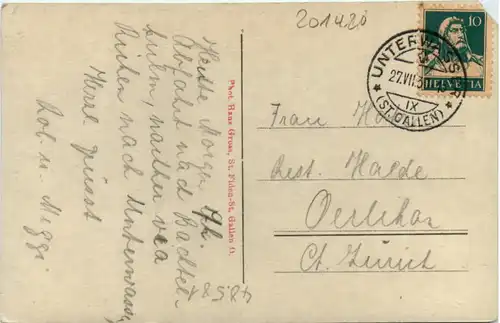 201420
10
HELVETIA
UNTERWASSER
27.VII.3
IX
(ST. GALLEN)
Heute Morgen 9h.
Abfahrt nach Bachtel-
kulm, weiter via
Ricken nach Unterwasser,
Herzl. Grüsst
Rob. u. Meggi
Phot. Hans Gross, St. Fiden-St. Gallen O.
Frau
Rest. Halde
Oerlikon
Ct. Zürich